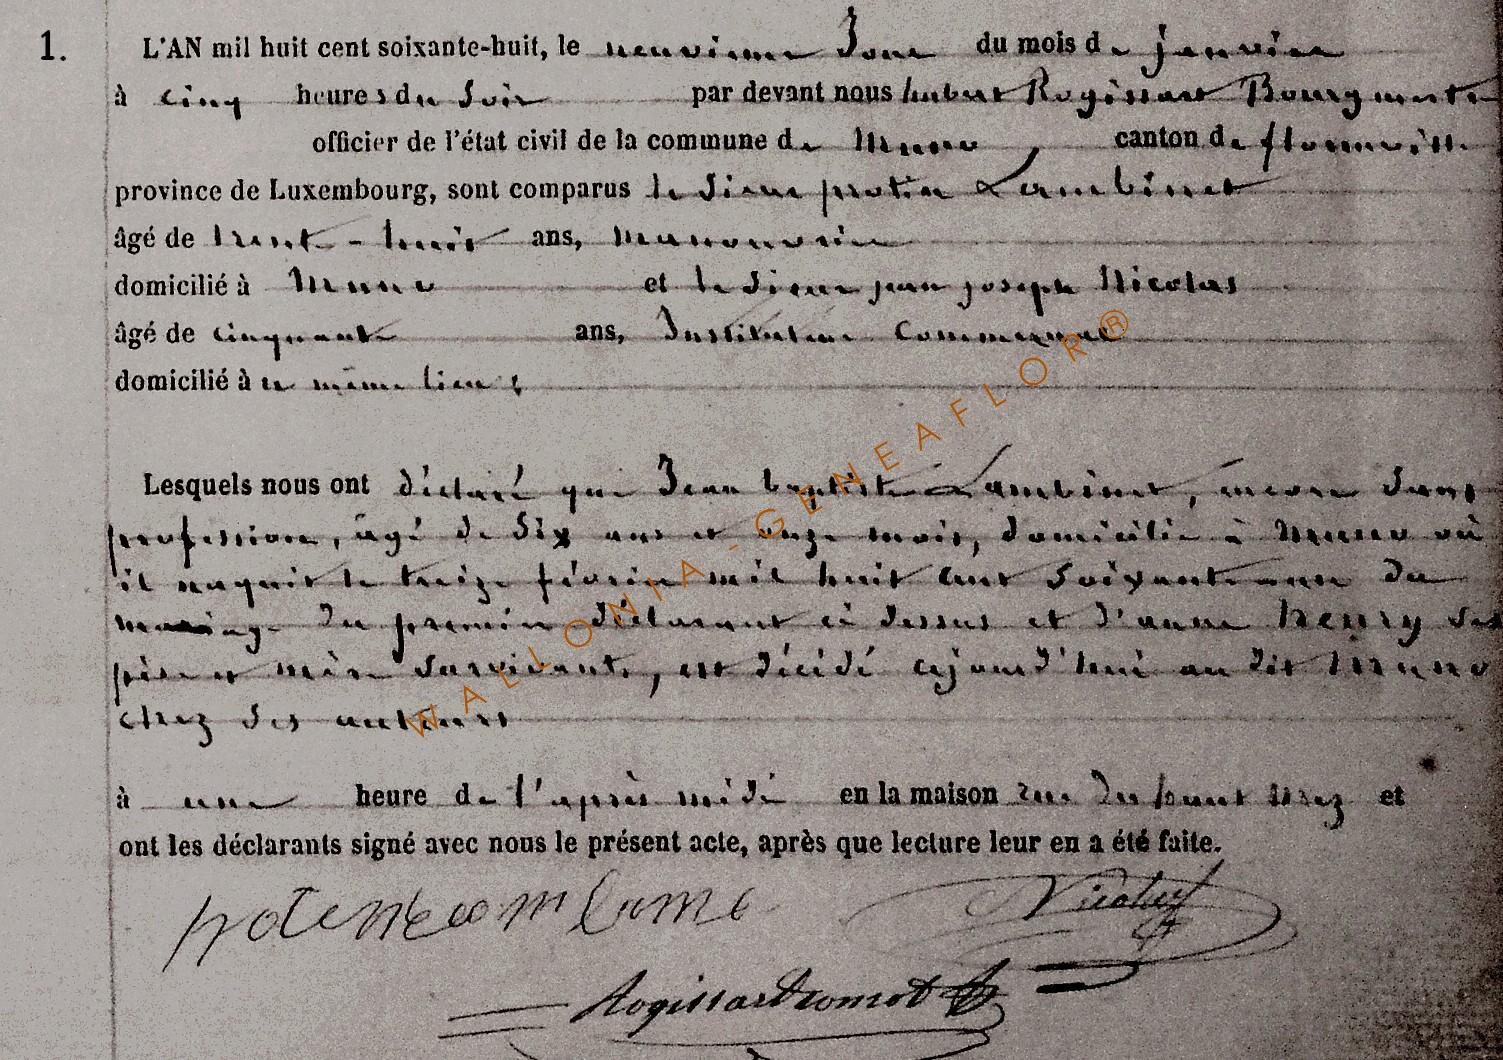 1. L'AN mil huit cent soixante-huit, le neuvieme Jour du mois de janvier
à cinq heures du Soir par devant nous hubert Rogissart Bourgmestre
officier de l'état civil de la commune de Muno, canton de florenville
province de Luxembourg, sont comparus le Sieur protin Lambinet
âgé de trente-huit ans, manouvrier
domicilié à Muno et le Sieur jean joseph Nicolas
âgé de cinquante ans, Instituteur Communal
domicilié à ce même lieu ;
Lesquels nous ont déclaré que Jean baptiste Lambinet, encore Sans
profession, âgé de Six ans et onze mois, domicilié à Muno où
il naquit le treize février mil huit cent Soixante-une du
mariage du premier déclarant ci dessus et d'anne henry Ses
père et mère Survivants, est décédé cejourd'hui au dit Muno
chez Ses auteurs
à une heure de l'après midi en la maison rue du haut et
ont les déclarants signé avec nous le présent acte, après que lecture leur en a été faite.
Nicolas
Rogissart
WALLONIA-GENEAFLOR®